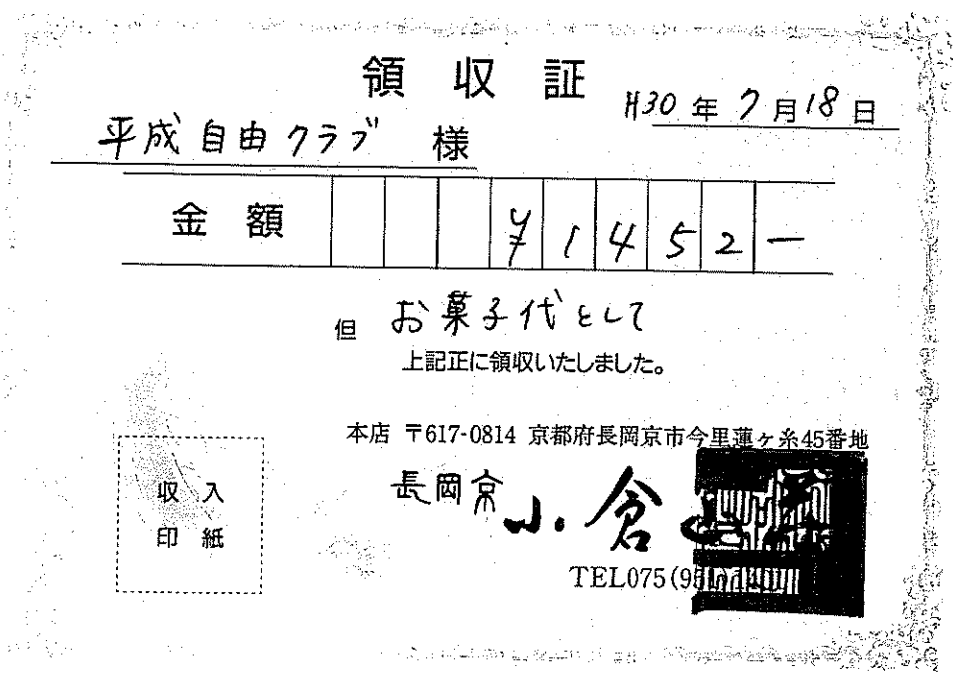 領収証
H30年7月18日
平成自由クラブ 様
金額 ¥1452-
但 お菓子代として
上記正に領収いたしました。
本店 〒617-0814 京都府長岡京市今里蓮ヶ糸45番地
長岡京 小倉山
TEL075(95
収入
印紙